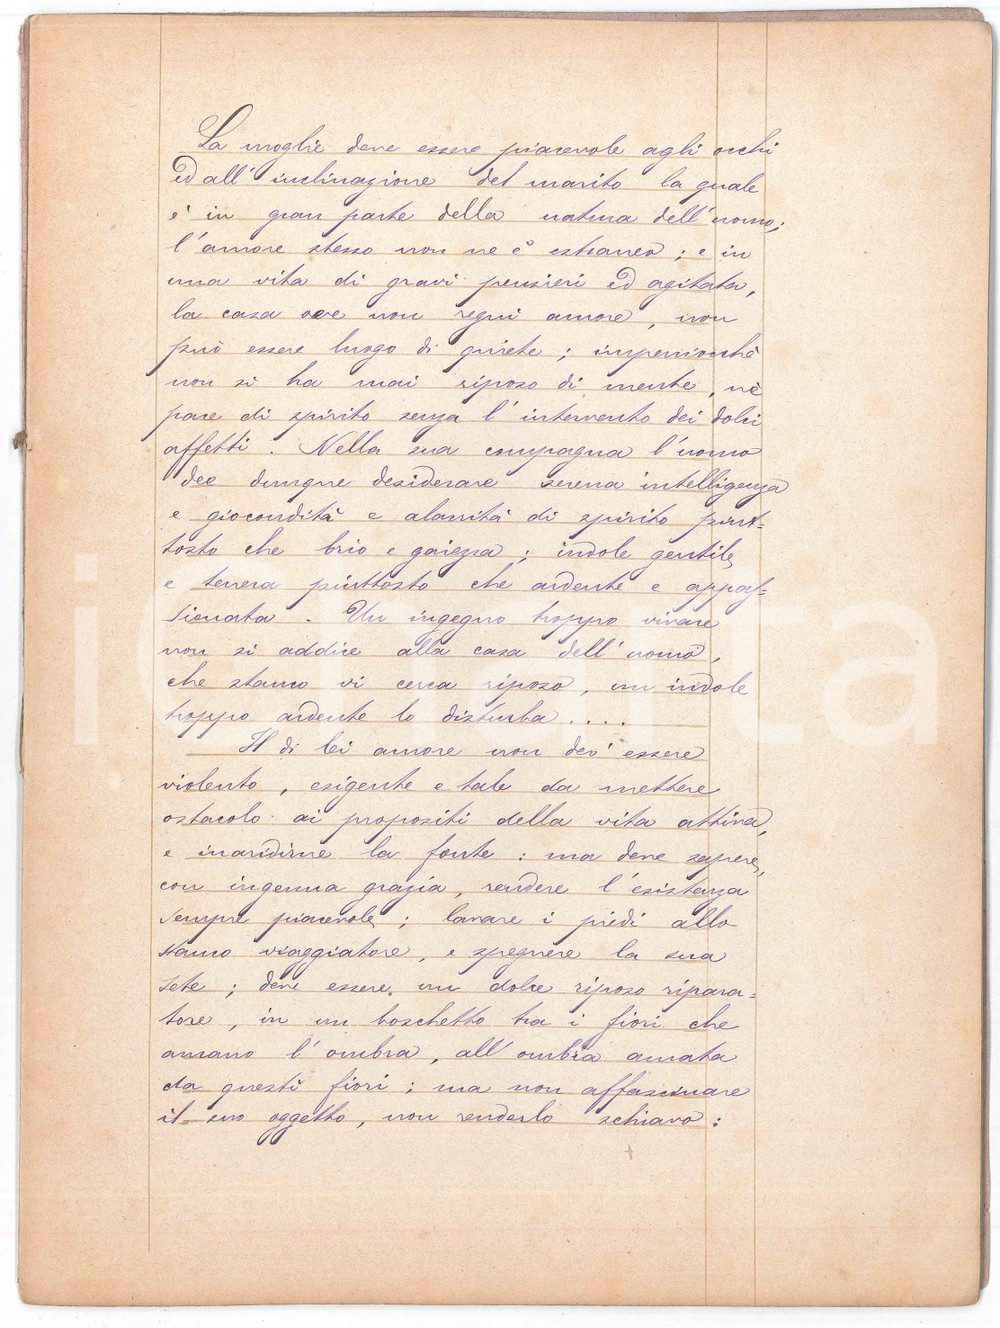 La moglie deve essere piacevole agli occhi
ed all' inclinazione del marito la quale
è in gran parte della natura dell'uomo;
l'amore stesso non ne è estraneo; e in
una vita di gravi pensieri ed agitata,
la casa ove non regni amore, non
può essere luogo di quiete; imperiocchè
non si ha mai riposo di mente, nè
pace di spirito senza l'intervento dei dolci
affetti. Nella sua compagna l'uomo
dee dunque desiderare serena intelligenza
e giocondità e alacrità di spirito piut-
tosto che brio e gaiezza; indole gentile,
e tenera piuttosto che ardente e appas-
sionata. Un ingegno troppo vivace
non si addice alla casa dell'uomo,
che stanco vi cerca riposo, un indole
troppo ardente lo disturba....
Il di lei amore non dev'essere
violento, esigente e tale da mettere
ostacolo ai propositi della vita attiva,
e inaridirne la fonte: ma deve sapere,
con ingenua grazia, rendere l'esistenza
sempre piacevole; lavare i piedi allo
stanco viaggiatore, e spegnere la sua
sete; deve essere un dolce riposo ripara=
tore, in un boschetto tra i fiori che
amano l'ombra, all'ombra amata
da questi fiori; ma non affascinare
il suo oggetto, non renderlo schiavo: